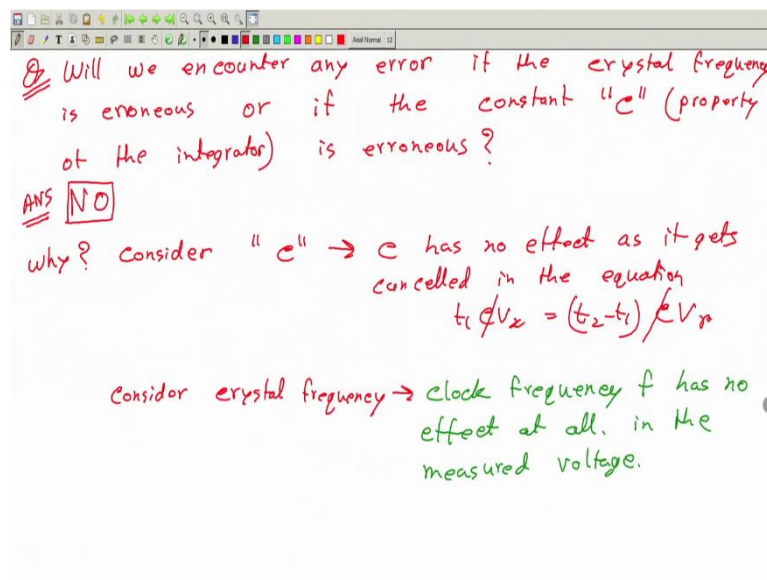 Arial Normal 12
Q Will we encounter any error if the crystal frequency
is erroneous or if the constant "c" (property
of the integrator) is erroneous?
ANS NO
Why? Consider "c" → c has no effect as it gets
cancelled in the equation
t₁ c Vₓ = (t₂-t₁) c Vᵣ
Consider crystal frequency → clock frequency f has no
effect at all. in the
measured voltage.